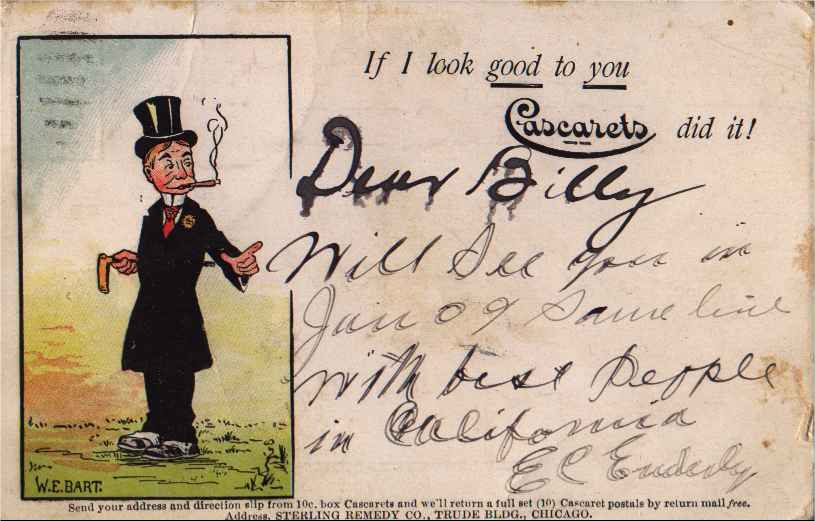 If I look good to you
Cascarets did it!
Dear Billy
Will See you in
Jan 09 Same line
with best people
in California
E C Enderly
W.E.BART.
Send your address and direction slip from 10c. box Cascarets and we'll return a full set (10) Cascaret postals by return mail free.
Address, STERLING REMEDY CO., TRUDE BLDG., CHICAGO.